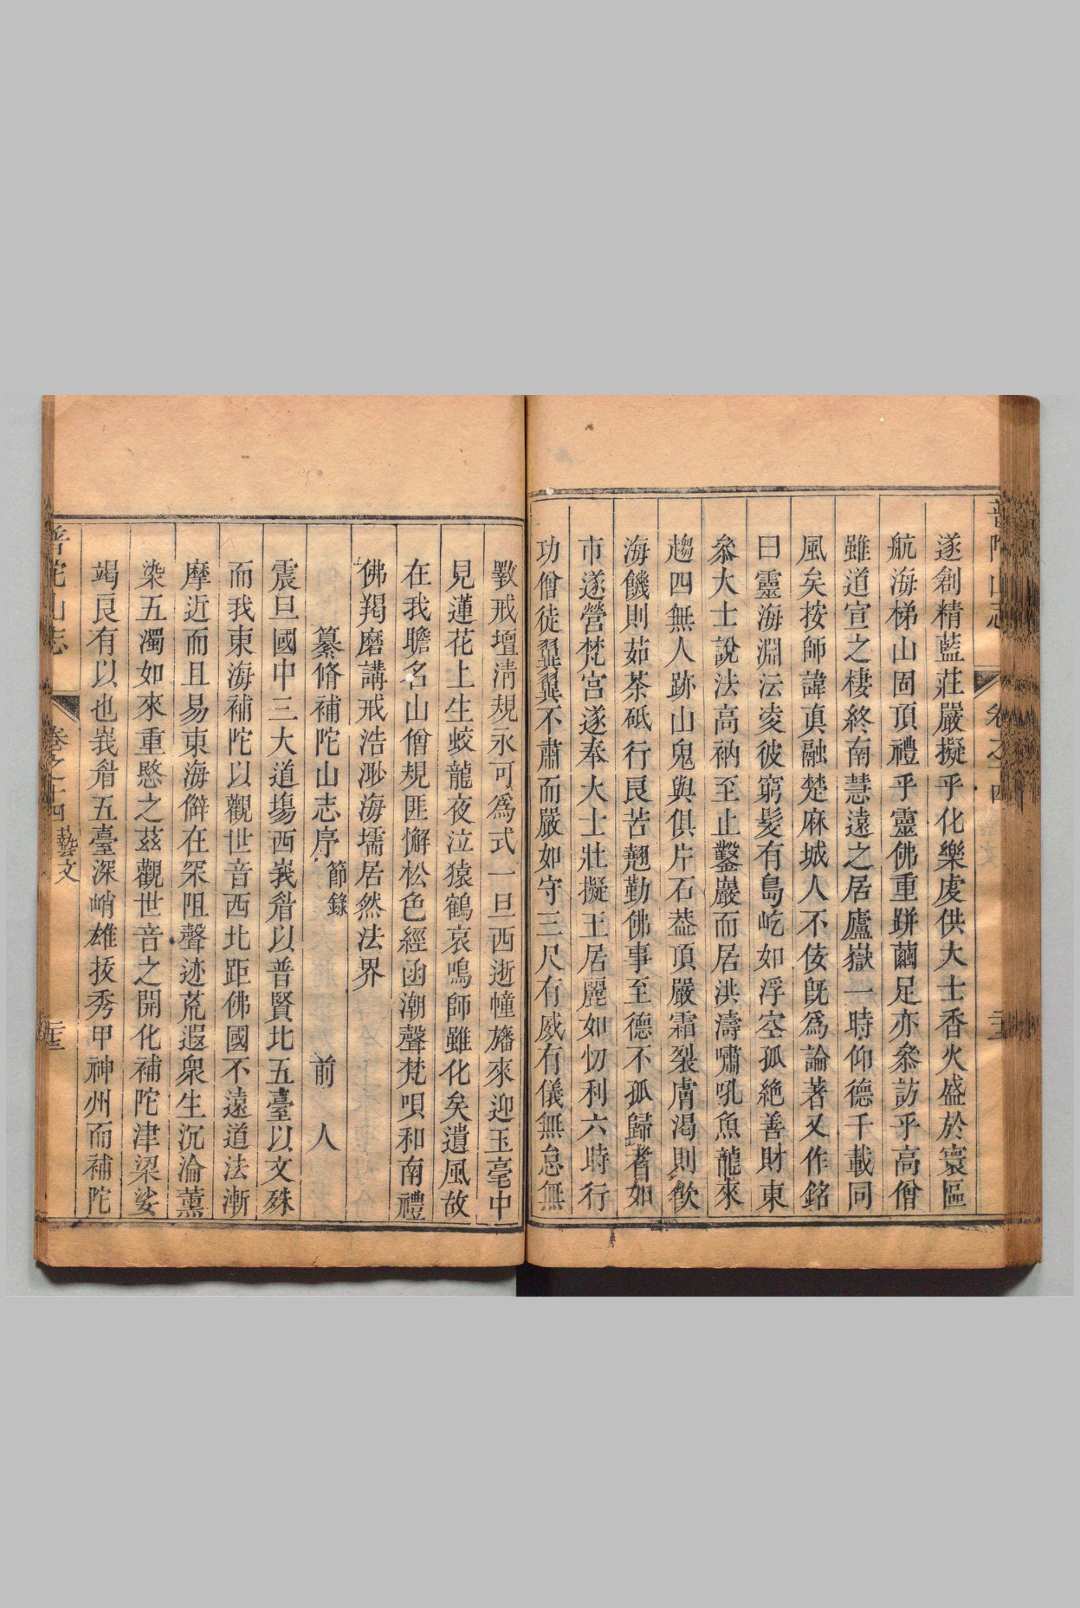 遂創精藍莊嚴擬乎化樂處供大士香火盛於寰區
航海梯山固頂禮乎靈佛重跰繭足亦叅訪乎高僧
雖道宣之棲終南慧遠之居廬嶽一時仰德千載同
風矣按師諱真融楚麻城人不佞旣爲論著又作銘
曰靈海淵沄凌彼窮髮有島屹如浮空孤絶善財東
叅大士說法高衲至止鑿巖而居洪濤嘯吼魚龍來
趨四無人跡山鬼與俱片石葢頂嚴霜裂膚渴則飲
海饑則茹茶砥行艮苦翹勤佛事至德不孤歸者如
市遂營梵宮遂奉大士壯擬王居麗如忉利六時行
功僧徒翼翼不肅而嚴如守三尺有威有儀無怠無
斁戒壇淸規永可爲式一旦西逝幢旛來迎玉毫中
見蓮花上生蛟龍夜泣猿鶴哀鳴師雖化矣遺風故
在我瞻名山僧規匪懈松色經函潮聲梵唄和南禮
佛羯磨講戒浩渺海壖居然法界
纂脩補陀山志序 節錄 前人
震旦國中三大道塲西峩眷以普賢北五臺以文殊
而我東海補陀以觀世音西北距佛國不遠道法漸
摩近而且易東海僻在罙阻聲迹荒遐衆生沉淪薰
染五濁如來重愍之茲觀世音之開化補陀津梁娑
竭艮有以也峩眷五臺深峭雄拔秀甲神州而補陀
普陀山志 卷之十四 藝文 二十三